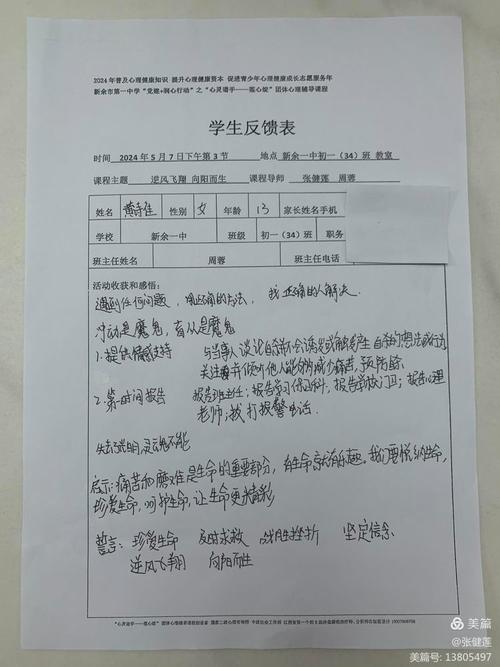 2024 年普及心理健康知识 提升心理健康资本 促进青少年心理健康成长志愿服务年
新余市第一中学“党建+润心行动”之“心灵谱手——莲心绽”团体心理辅导课程
学生反馈表
时间 2024 年 5 月 7 日下午第 3 节 地点 新余一中初一（34）班 教室
课程主题 逆风飞翔 向阳而生 课程导师 张健莲 周蓉
姓名 黄诗佳 性别 女 年龄 13 家长姓名手机
学校 新余一中 班级 初一（34）班 职务
班主任姓名 周蓉 班主任电话
活动收获和感悟：
遇到任何问题，用正确的方法，找正确的人解决。
冲动是魔鬼，盲从是魔鬼
1.提供情感支持 与当事人谈论自杀并不会诱发或触发产生自杀的想法或行为
关注并倾听他人能够减少痛苦，预防
2.第一时间报告 报告班主任；报告学习，报告学校门卫；报告心理
老师；拨打报警电话.
失去光明，灵魂不能
启示：痛苦和磨难是生命的重要部分，有生命就有乐趣。我们要悦纳生命，
珍爱生命，呵护生命，让生命更精彩
誓言：珍爱生命 及时求救 战胜挫折 坚定信念
逆风飞翔 向阳而生
美篇
@张健莲
美篇号: 13805497